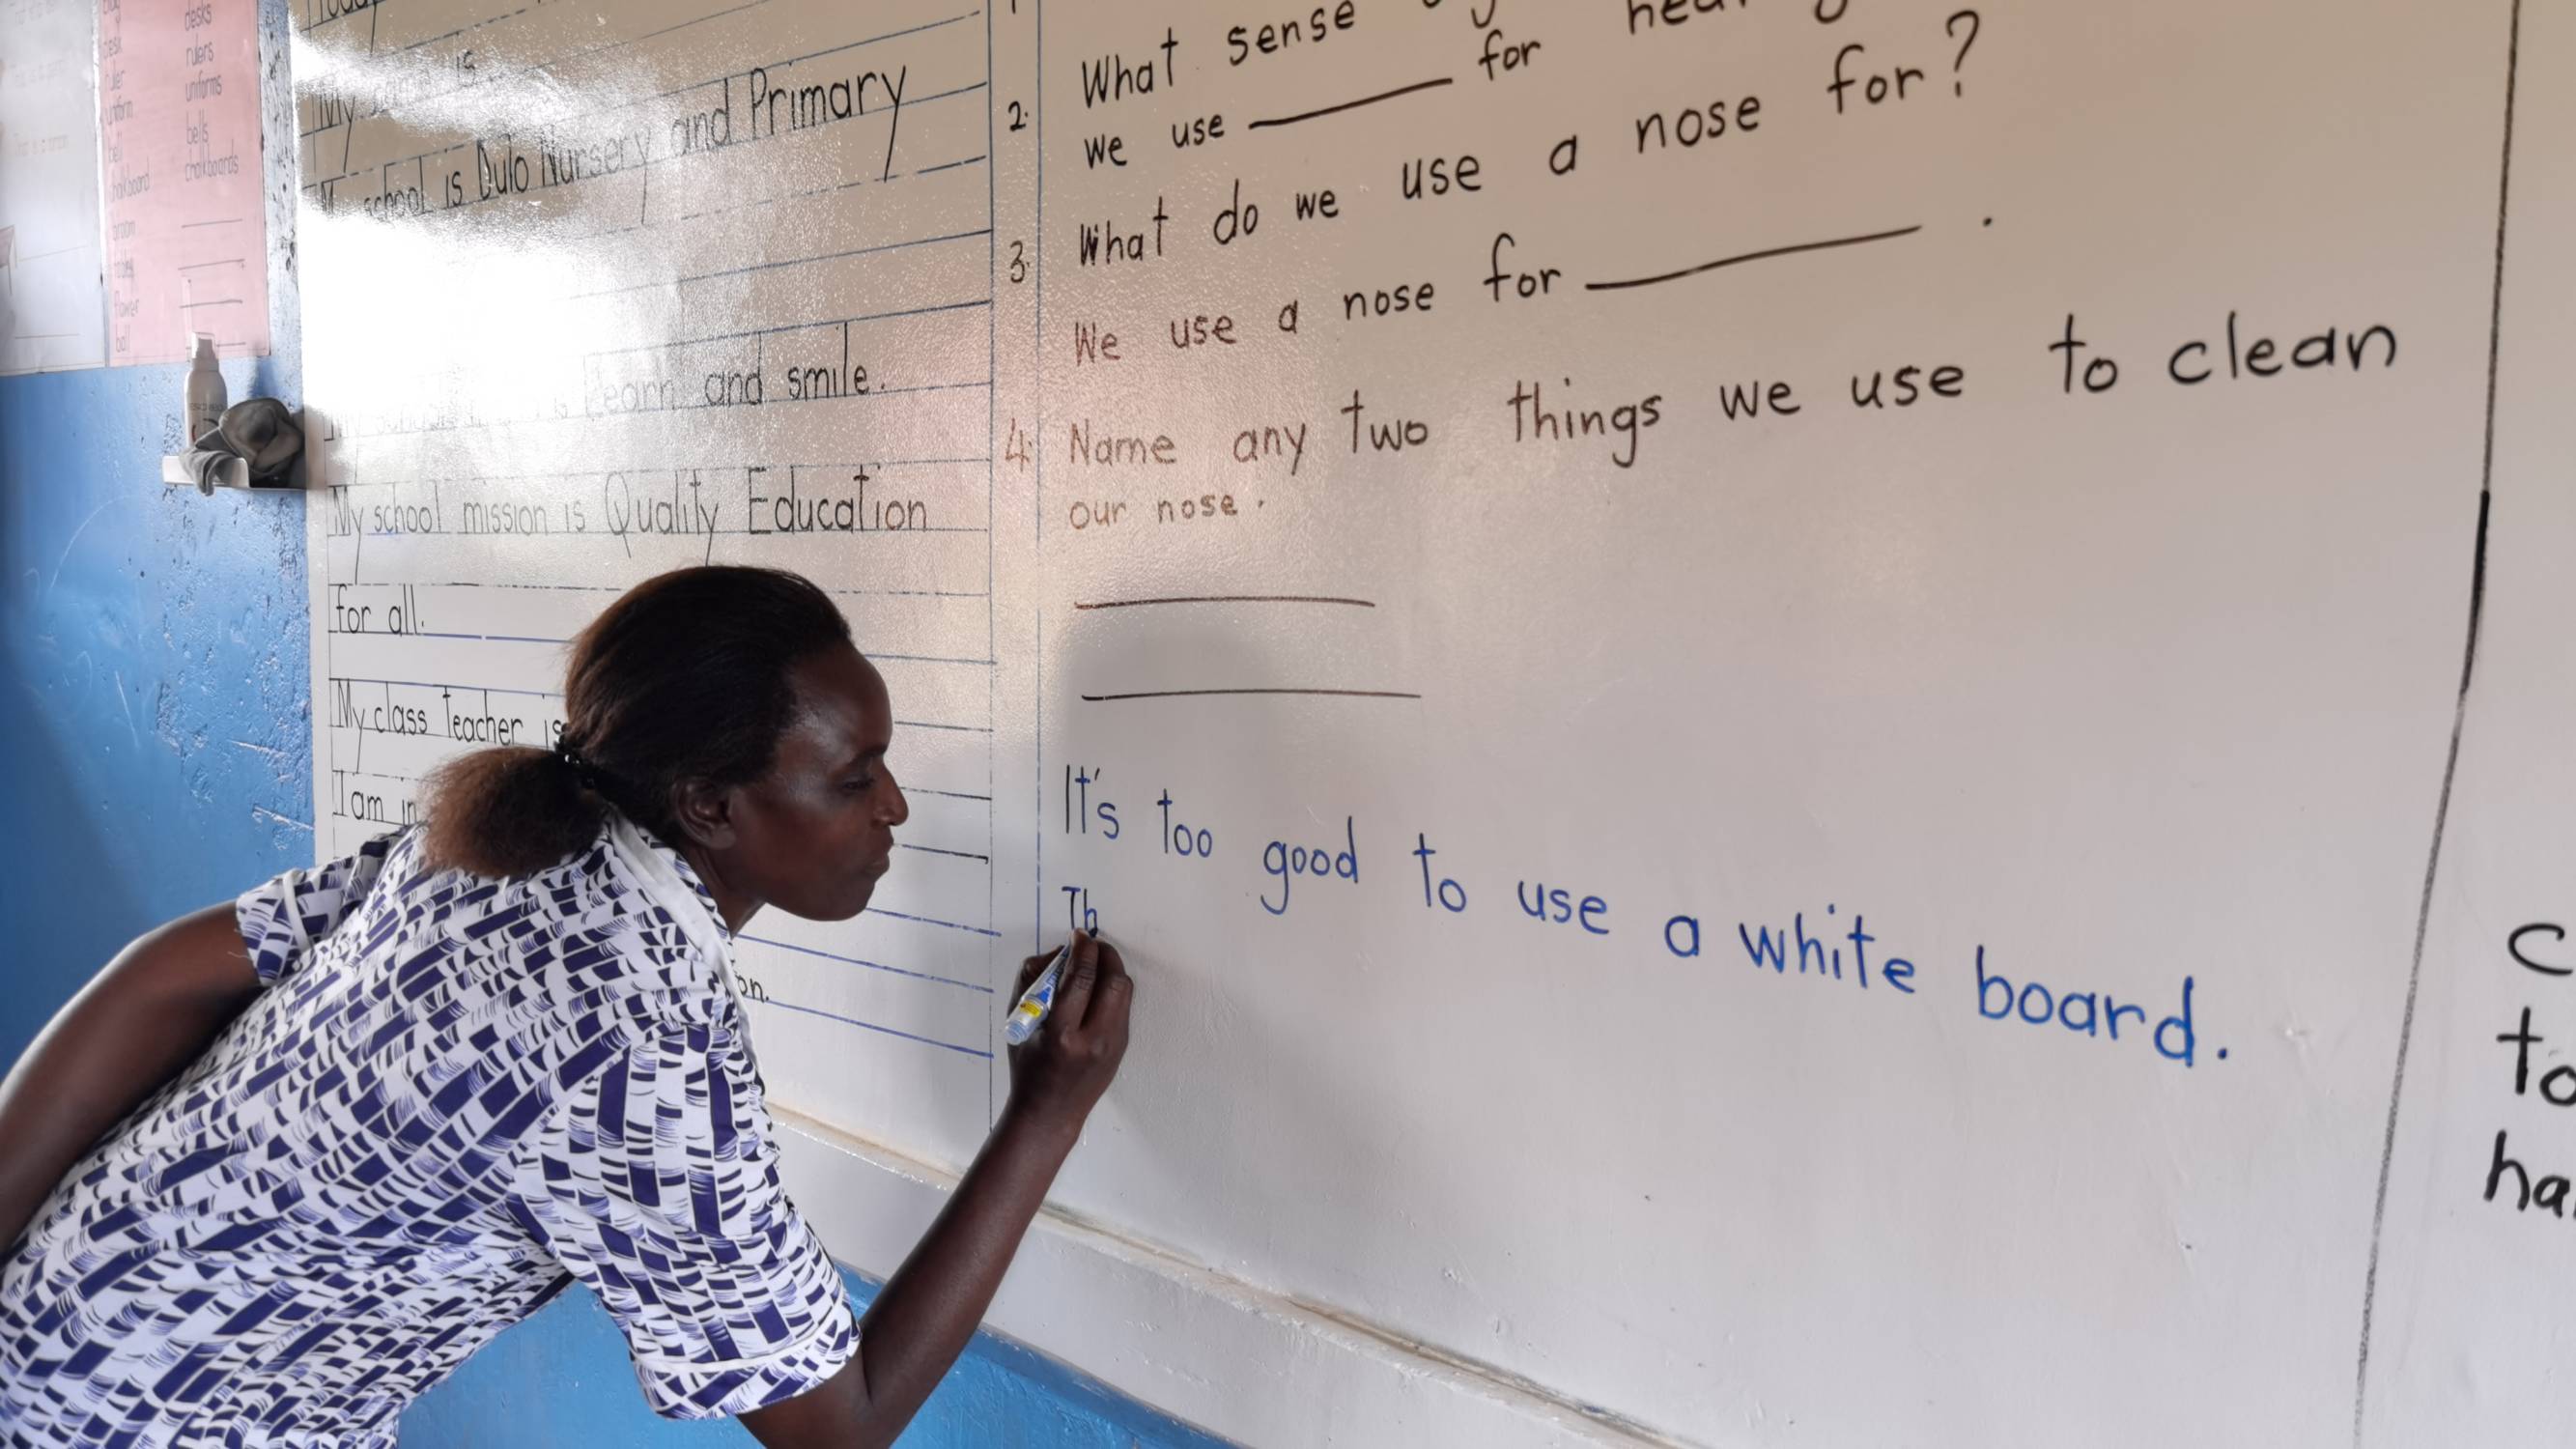 desks
rulers
uniforms
bells
chalkboards
ruler
uniform
bell
flower
ball
Today
My is
My school is Dulo Nursery and Primary
is Learn and smile.
My school mission is Quality Education
for all.
My class teacher is
I am in
on.
What sense
2. we use ______ for
What do we use a nose for?
3. We use a nose for ______ .
4. Name any two things we use to clean
our nose.
It's too good to use a white board.
Th
c
to
ha